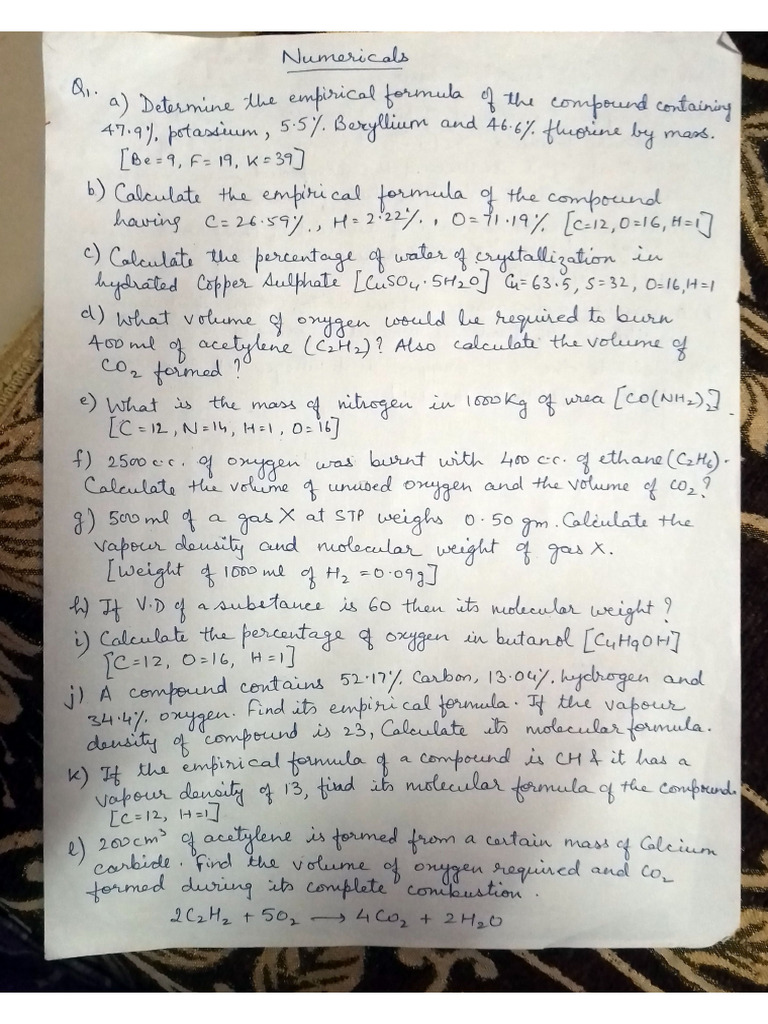 Numericals
Q1. a) Determine the empirical formula of the compound containing
47.9%, potassium, 5.5%. Beryllium and 46.6% fluorine by mass.
[Be = 9, F = 19, K = 39]
b) Calculate the empirical formula of the compound
having C = 26.59%, H = 2.22%, O = 71.19% [C=12, O=16, H=1]
c) Calculate the percentage of water of crystallization in
hydrated Copper Sulphate [CuSO4.5H2O] Cu = 63.5, S = 32, O=16, H=1
d) What volume of oxygen would be required to burn
400 ml of acetylene (C2H2)? Also calculate the volume of
CO2 formed?
e) What is the mass of nitrogen in 1000 Kg of urea [CO(NH2)2].
[C = 12, N = 14, H = 1, O = 16]
f) 2500 c.c. of oxygen was burnt with 400 c.c. of ethane (C2H6).
Calculate the volume of unused oxygen and the volume of CO2?
g) 500 ml of a gas X at STP weighs 0.50 gm. Calculate the
vapour density and molecular weight of gas X.
[Weight of 1000 ml of H2 = 0.09g]
h) If V.D of a substance is 60 then its molecular weight?
i) Calculate the percentage of oxygen in butanol [C4H9OH]
[C=12, O=16, H=1]
j) A compound contains 52.17% Carbon, 13.04% hydrogen and
34.4% oxygen. Find its empirical formula. If the vapour
density of compound is 23, Calculate its molecular formula.
k) If the empirical formula of a compound is CH & it has a
vapour density of 13, find its molecular formula of the compound.
[C=12, H=1]
l) 200 cm³ of acetylene is formed from a certain mass of Calcium
carbide. Find the volume of oxygen required and CO2
formed during its complete combustion.
2C2H2 + 5O2 → 4CO2 + 2H2O